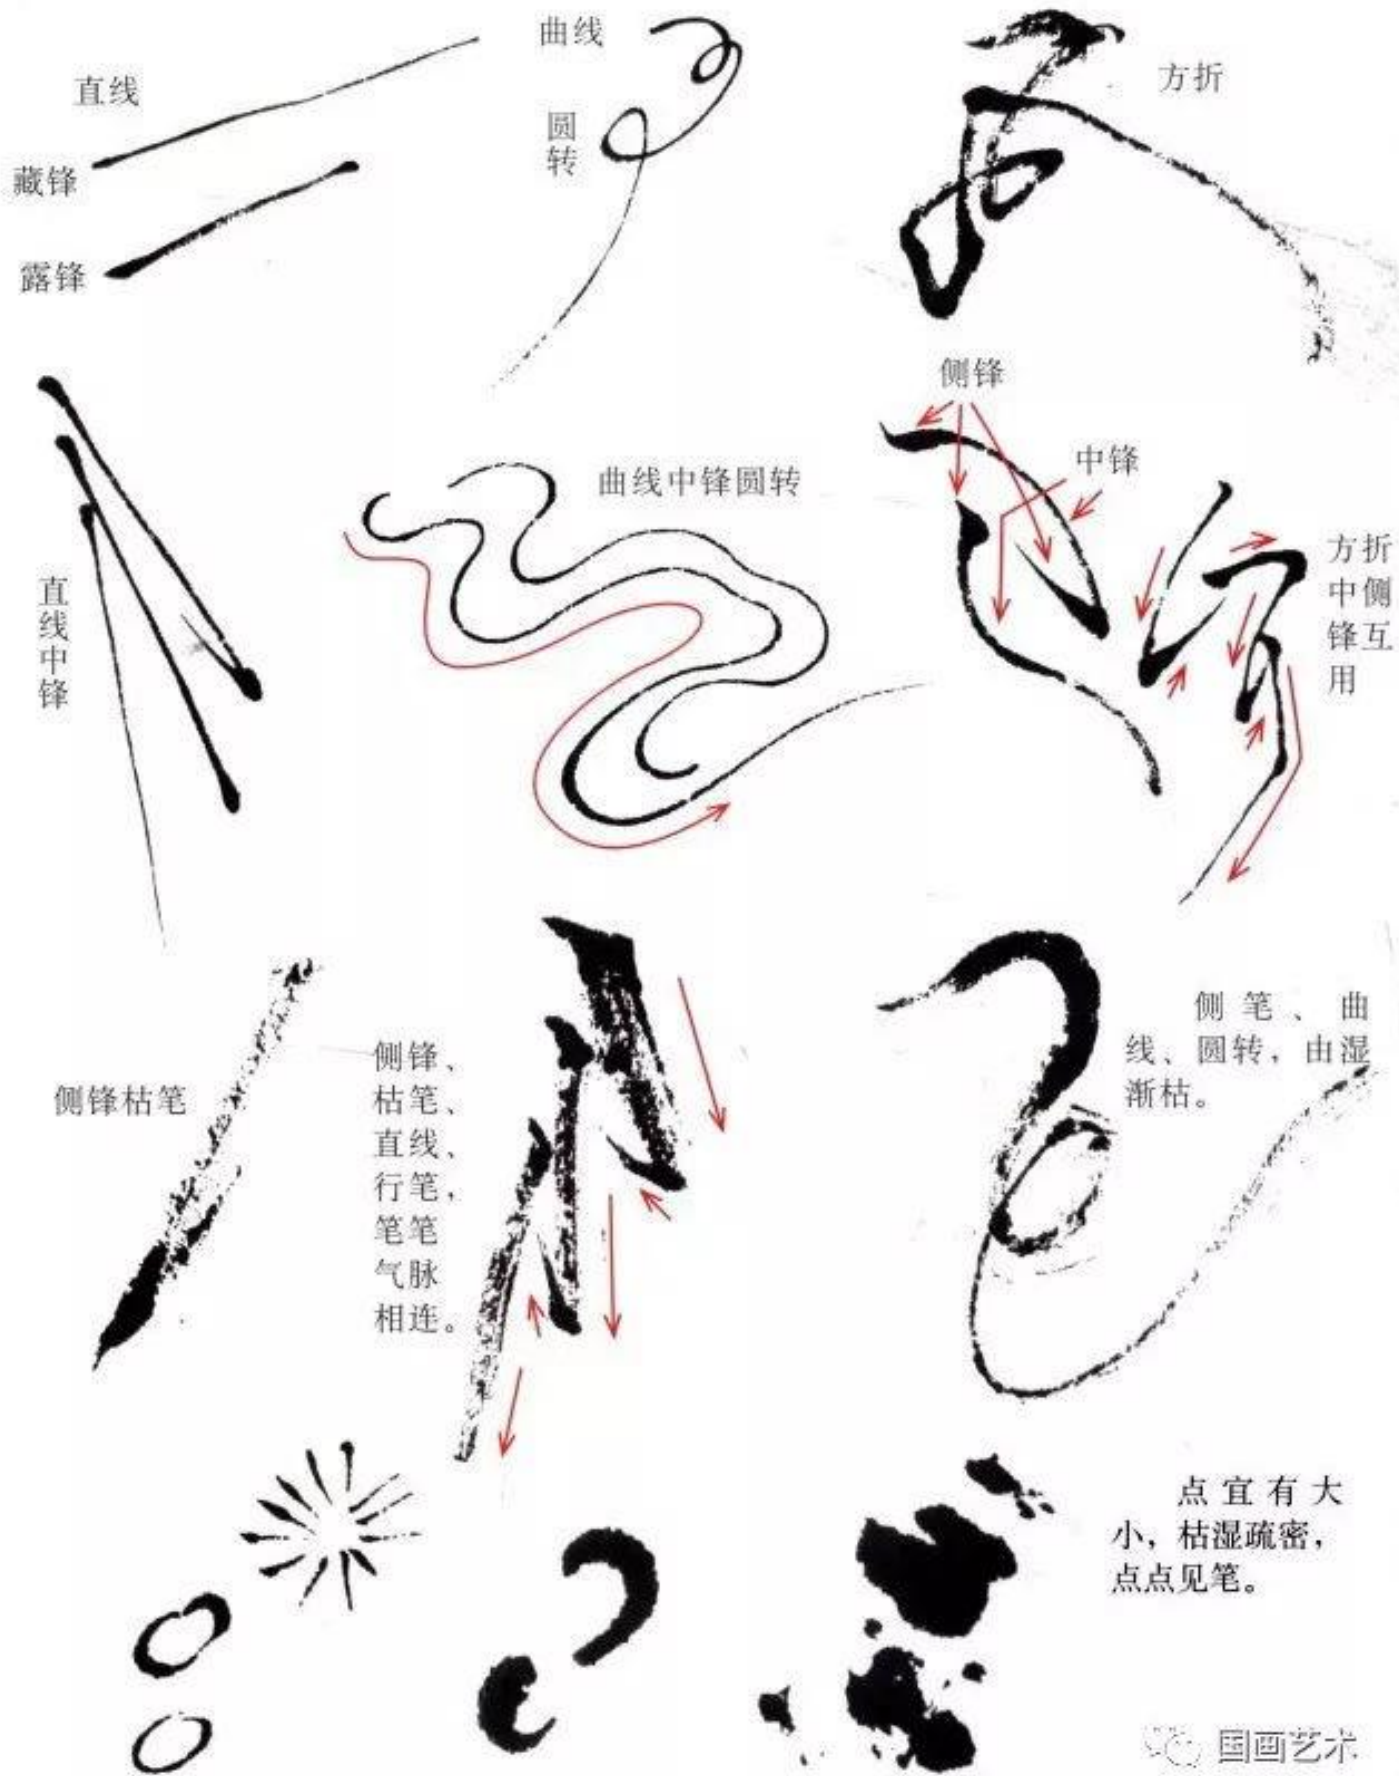 直线
曲线
方折
圆转
藏锋
露锋
侧锋
中锋
曲线中锋圆转
直线中锋
方折
中侧
锋互
用
侧锋枯笔
侧锋、
枯笔、
直线、
行笔，
笔笔
气脉
相连。
侧笔、曲
线、圆转，由湿
渐枯。
点宜有大
小，枯湿疏密，
点点见笔。
国画艺术